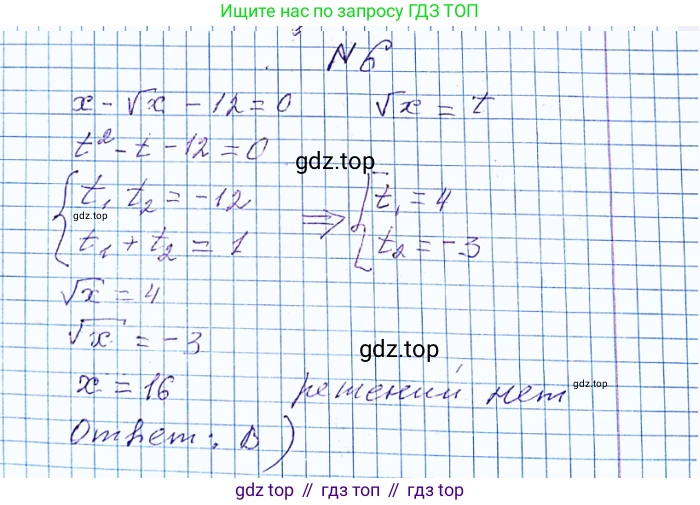 Ищите нас по запросу ГДЗ ТОП
N 6
x - √x - 12 = 0 √x = t
t² - t - 12 = 0
gdz.top
t₁ t₂ = -12 ⇒ t₁ = 4
gdz.top
t₁ + t₂ = 1 t₂ = -3
√x = 4
√x = -3
gdz.top
x = 16 решений нет
gdz.top
Ответ: В)
gdz top // гдз топ // gdz top // гдз топ